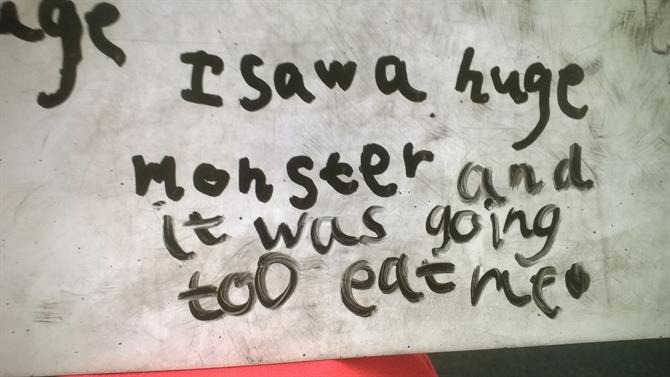 uge
I saw a huge
monster and
it was going
too eat me.